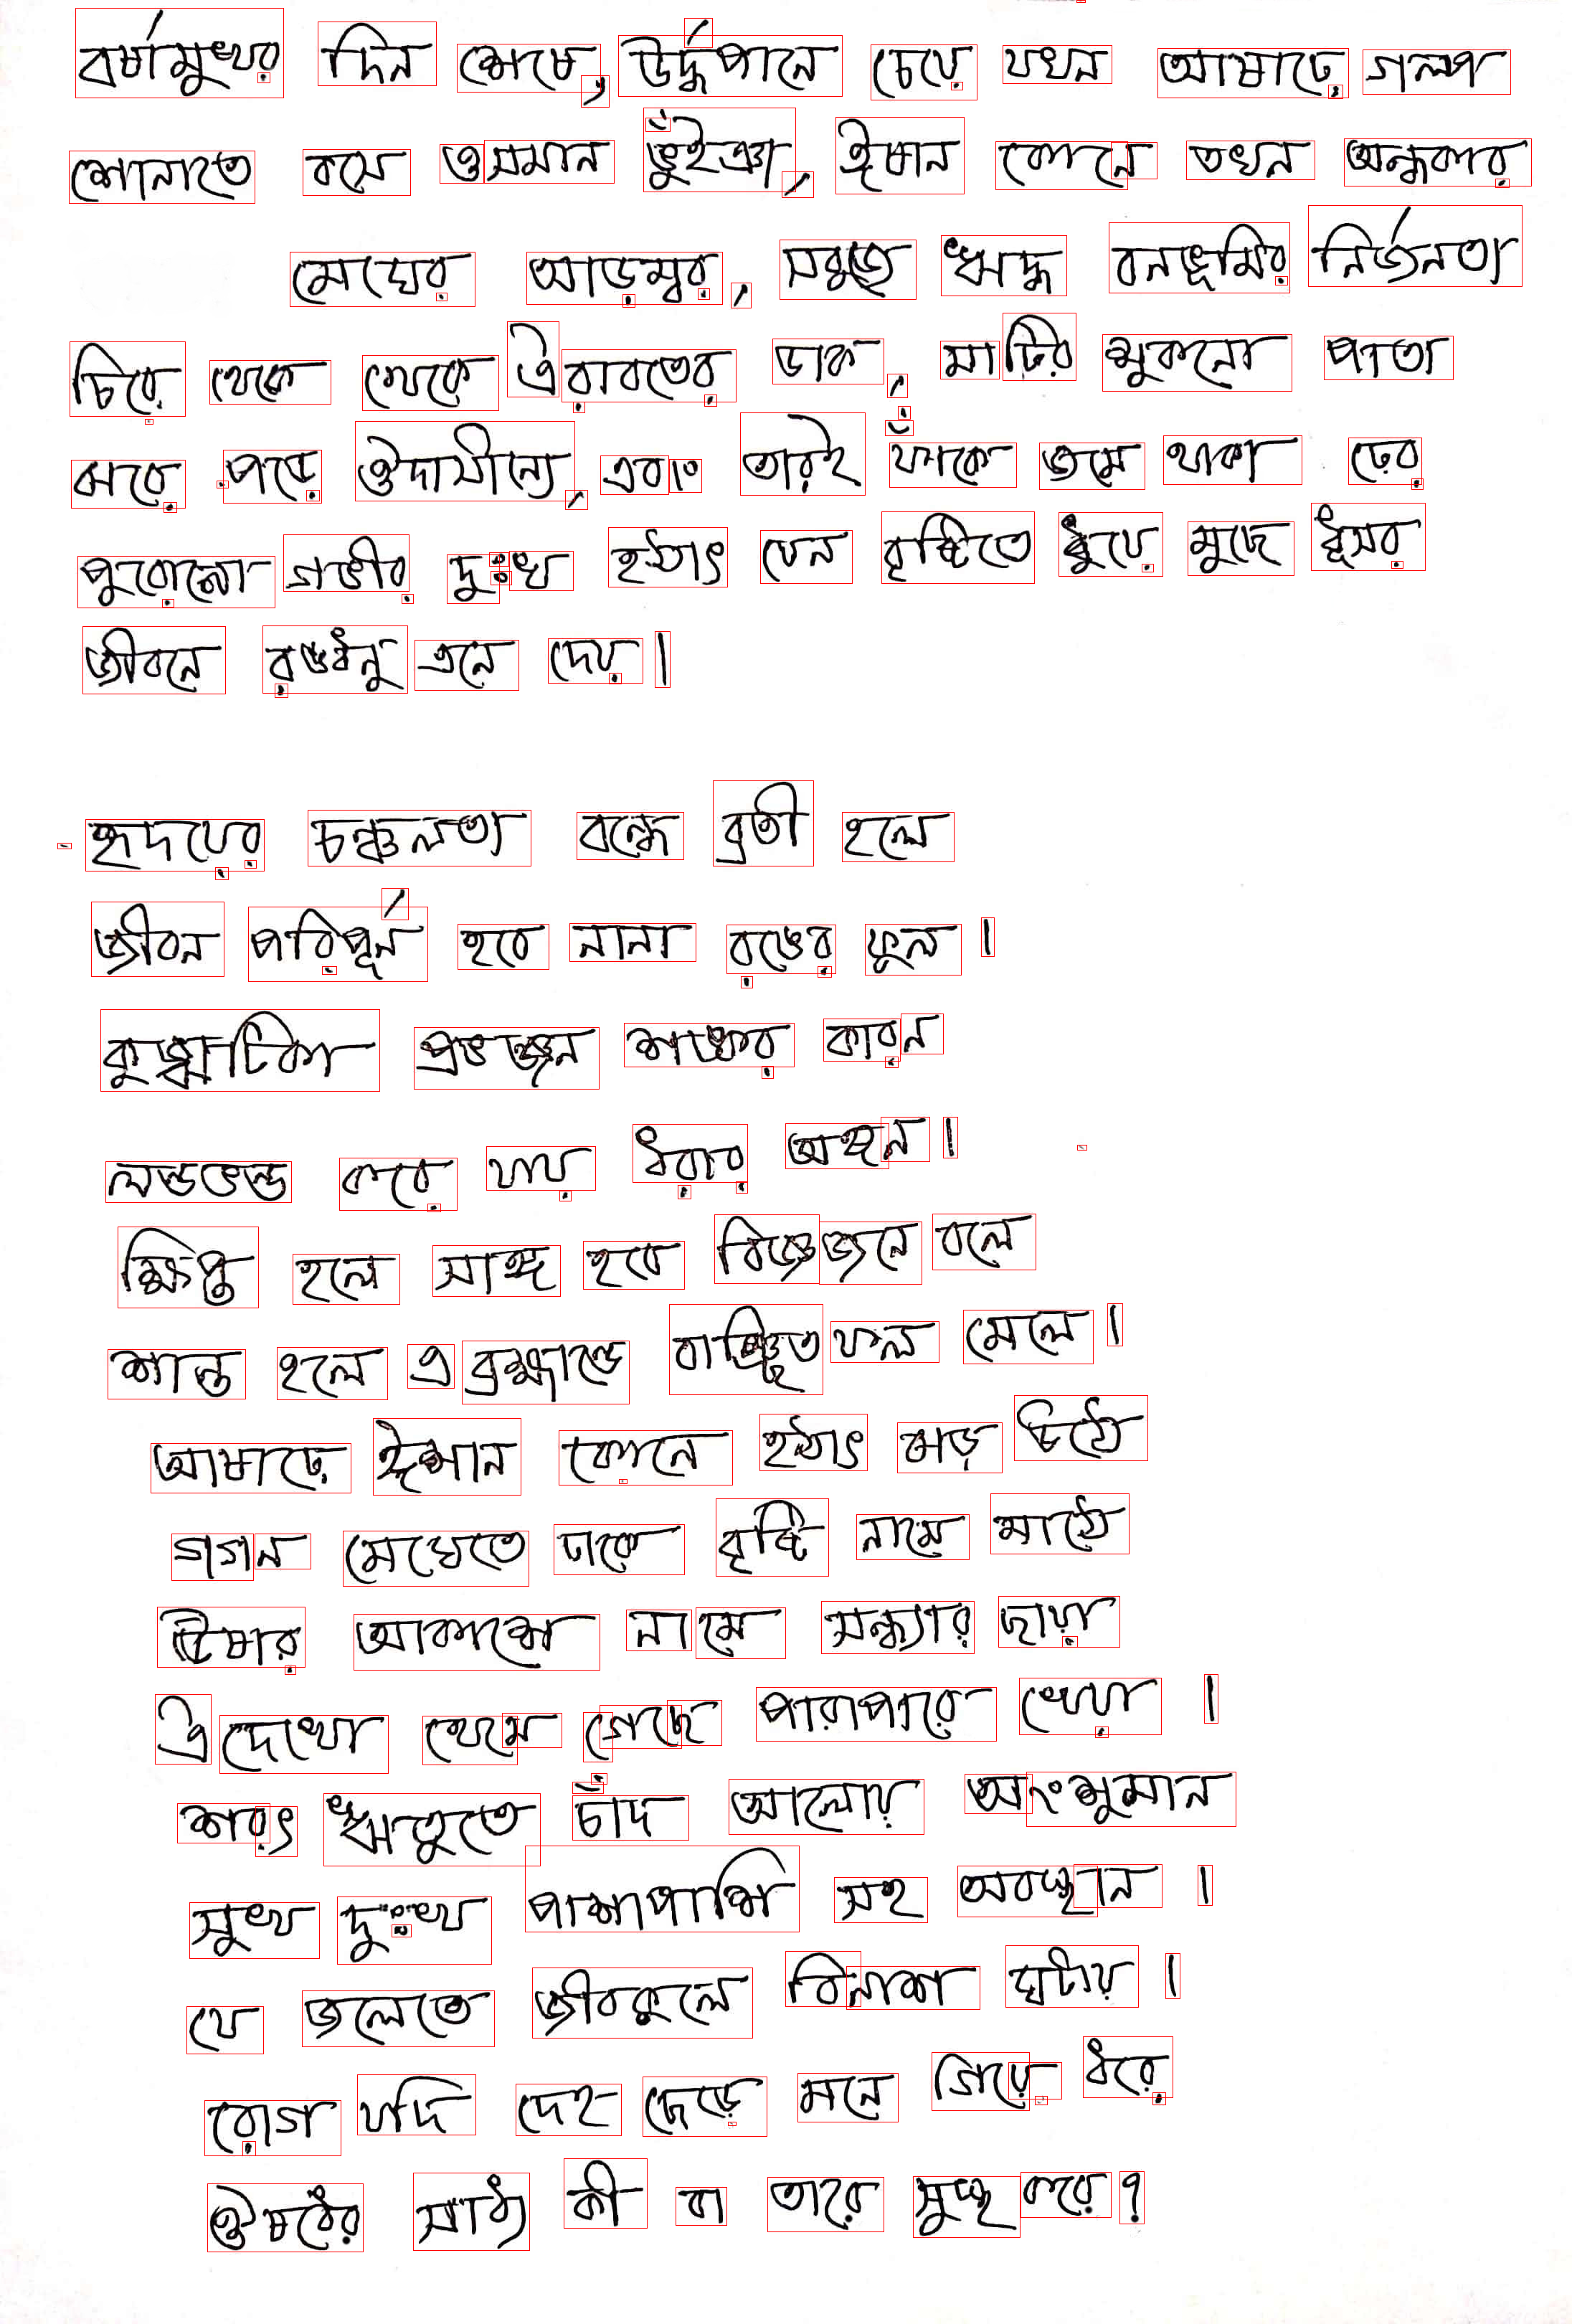 বর্ষামুখর দিন শেষে, উর্দ্ধপানে চেয়ে যখন আষাঢ়ে গল্প
শোনাতে বসে ওসমান ভুঁইঞা, ঈষান কোনে তখন অন্ধকার
মেঘের আড়ম্বর, সবুজে ঋদ্ধ বনভূমির নির্জনতা
চিরে থেকে থেকে ঐরাবতের ডাক, মাটির শুকনো পাতা
ঝরে পড়ে ঔদাসীন্যে, এবং তারই ফাঁকে জমে থাকা ঢের
পুরোনো গভীর দুঃখ হঠাৎ যেন বৃষ্টিতে ধুয়ে মুছে ধূসর
জীবনে রঙধনু এনে দেয়।
হৃদয়ের চঞ্চলতা বন্ধে ব্রতী হলে
জীবন পরিপূর্ন হবে নানা রঙের ফুলে।
কুজ্ঝটিকা প্রভঞ্জন শঙ্কার কারন
লন্ডভন্ড করে যায় ধরার অঙ্গন।
ক্ষিপ্ত হলে সাঙ্গ হবে বিজ্ঞজনে বলে
শান্ত হলে এ ব্রহ্মান্ডে বাঞ্ছিত ফল মেলে।
আষাঢ়ে ঈশান কোনে হঠাৎ ঝড় উঠে
গগন মেঘেতে ঢাকে বৃষ্টি নামে মাঠে
ঊষার আকাশে নামে সন্ধ্যার ছায়া
ঐ দেখো থেমে গেছে পারাপারে খেয়া।
শরৎ ঋতুতে চাঁদ আলোয় অংশুমান
সুখ দুঃখ পাশাপাশি সহ অবস্থান।
যে জলেতে জীবকুলে বিনাশ ঘটায়।
রোগ যদি দেহ ছেড়ে মনে গিয়ে ধরে
ঔষধের সাধ্য কী বা তারে সুস্থ করে?